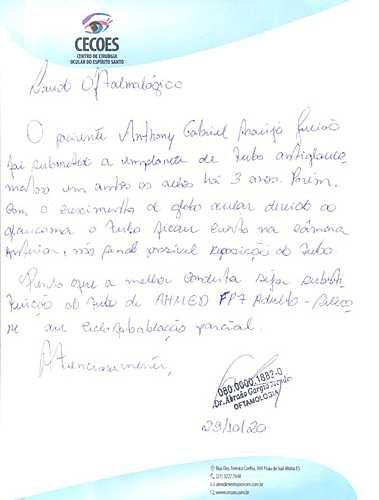 CECOES
CENTRO DE CIRURGIA
OCULAR DO ESPÍRITO SANTO
Laudo Oftalmológico
O paciente Anthony Gabriel Araujo
foi submetido a implante de tubo antiglauco-
matoso em ambos os olhos há 3 anos. Porém,
com o crescimento do globo ocular devido ao
glaucoma o tubo ficou curto na câmara
anterior, não sendo possível exposição do tubo.
Penso que a melhor conduta seja substi-
tuição do tubo de AHMED FP7 Adulto -
se ou ciclofotoablação parcial.
Atenciosamente,
080.0000.1882-0
OFTAMOLOGIA
29/10/20
Rua Des. Ferreira Coelho, Praia do Suá Vitória ES
atendimento@cecoes.com.br
www.cecoes.com.br